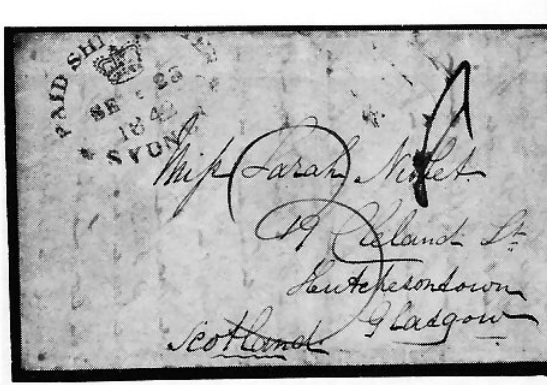 PAID SHIP LETTER
SE 23
184
SYDNEY
Miss Sarah Nisbet
19 Cleland St
Hutchesontown
Glasgow
Scotland